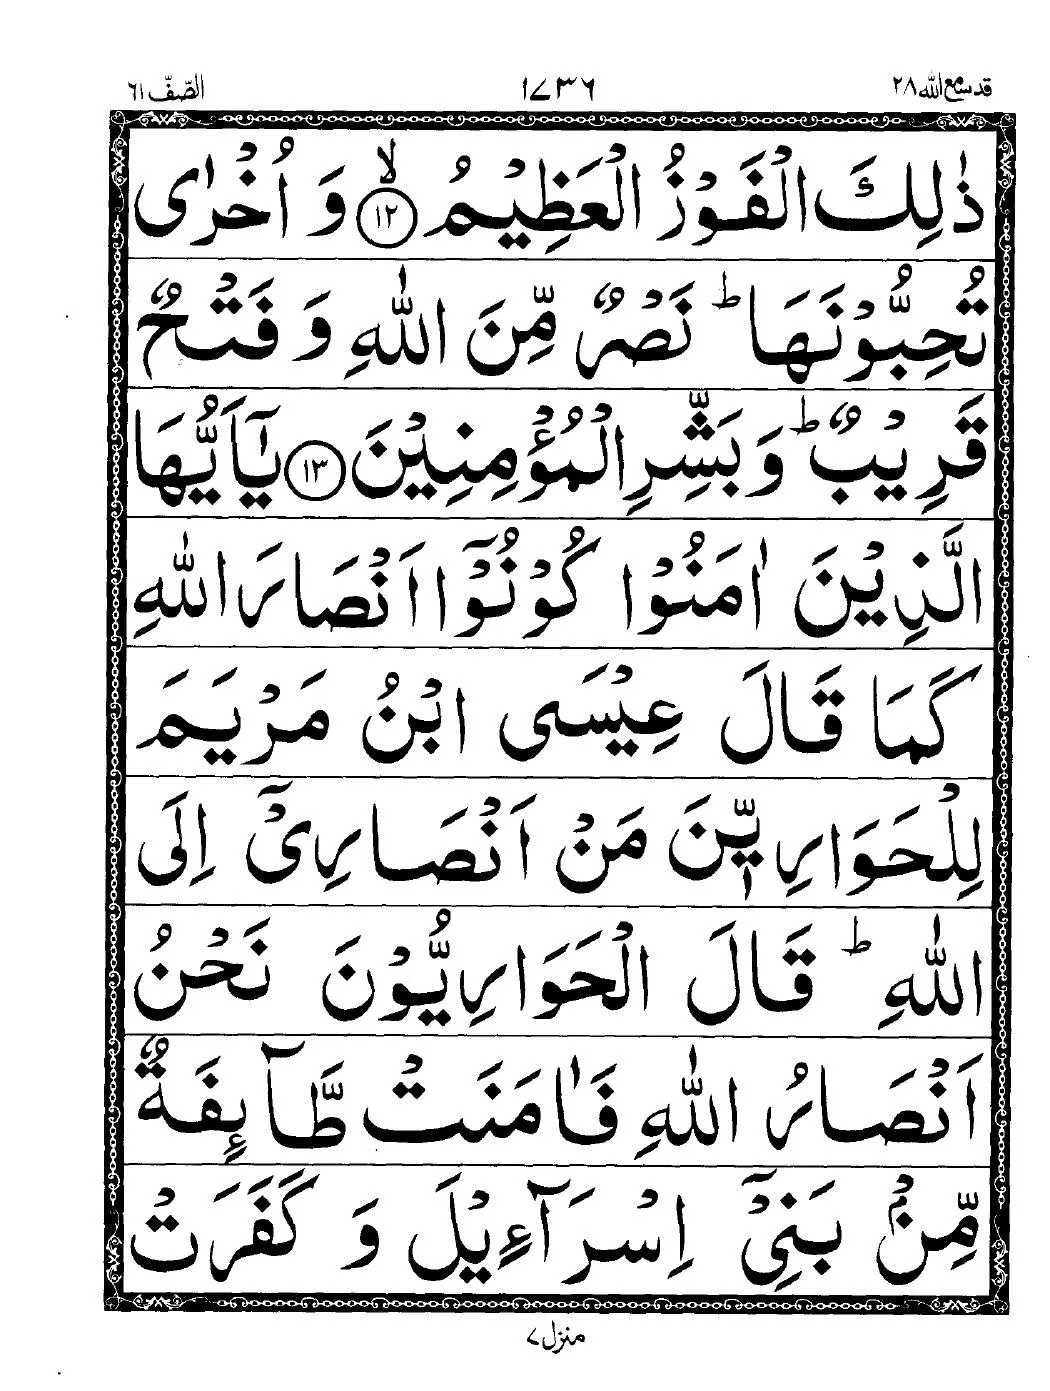 قد سمع الله ٢٨
١٧٣٦
الصّفّ ٦١
ذٰلِكَ الْفَوْزُ الْعَظِيْمُ ۙ﴿۱۲﴾ وَ اُخْرٰى
تُحِبُّوْنَهَا ؕ نَصْرٌ مِّنَ اللّٰهِ وَ فَتْحٌ
قَرِيْبٌ ؕ وَ بَشِّرِ الْمُؤْمِنِيْنَ ﴿۱۳﴾ يٰۤاَيُّهَا
الَّذِيْنَ اٰمَنُوْا كُوْنُوْۤا اَنْصَارَ اللّٰهِ
كَمَا قَالَ عِيْسَى ابْنُ مَرْيَمَ
لِلْحَوَارِيّٖنَ مَنْ اَنْصَارِيْۤ اِلَى
اللّٰهِ ؕ قَالَ الْحَوَارِيُّوْنَ نَحْنُ
اَنْصَارُ اللّٰهِ فَاٰمَنَتْ طَّآىِٕفَةٌ
مِّنْۢ بَنِيْۤ اِسْرَآءِيْلَ وَ كَفَرَتْ
منزل ٧